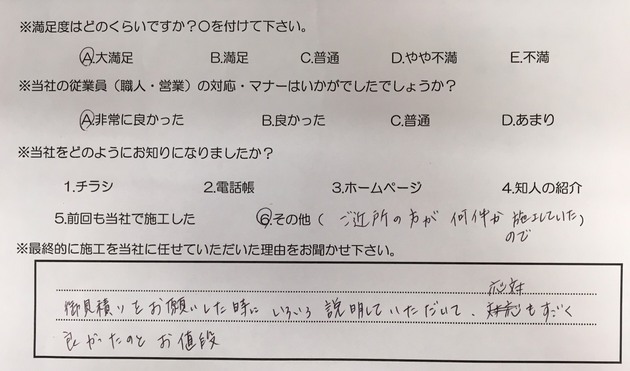 ※満足度はどのくらいですか?〇を付けて下さい。
A.大満足 B.満足 C.普通 D.やや不満 E.不満
※当社の従業員（職人・営業）の対応・マナーはいかがでしたでしょうか?
A.非常に良かった B.良かった C.普通 D.あまり
※当社をどのようにお知りになりましたか?
1.チラシ 2.電話帳 3.ホームページ 4.知人の紹介
5.前回も当社で施工した 6.その他 ( ご近所の方が 何件か 施工していた)
ので
※最終的に施工を当社に任せていただいた理由をお聞かせ下さい。
応対
御見積りをお願いした時に いろいろ 説明していただいて、もすごく
良かったのと お値段